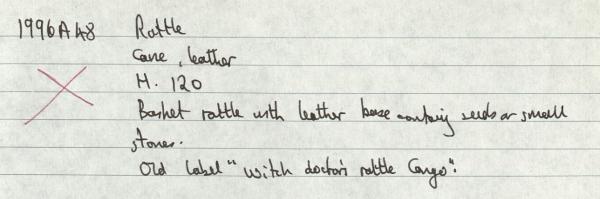 1996A48 Rattle
Cane, leather
H. 120
Basket rattle with leather base containing seeds or small
stones.
Old label "witch doctor's rattle Congo".